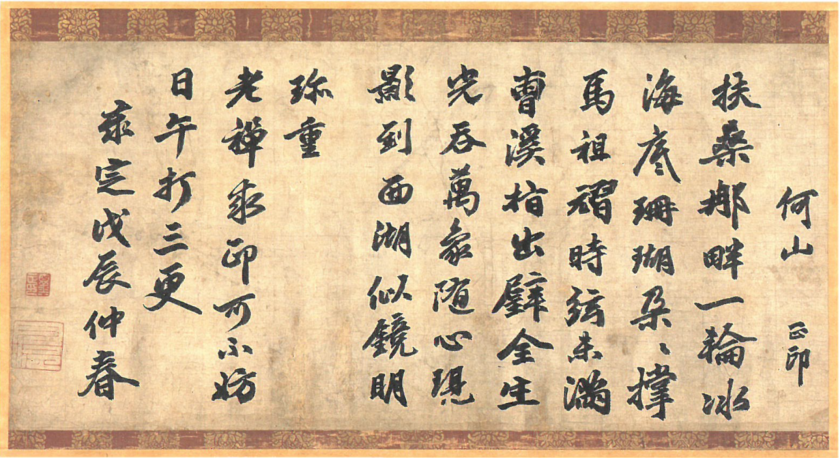 何山　正印
扶桑那畔一輪冰
海底珊瑚朶〻撑
馬祖時弦未滿
曹溪指出璧全生
光吞萬象随心現
影到西湖似鏡明
珎重
老禪求印可不妨
日午打三更
泰定戊辰仲春